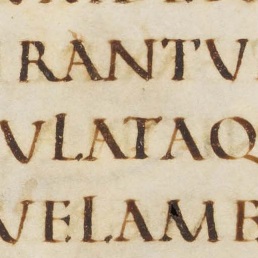 RANTU
ULATAQ
UELAMB